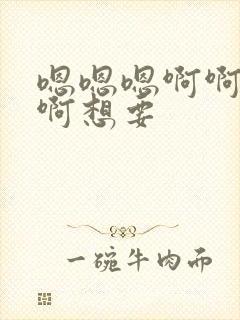 嗯嗯嗯啊啊
啊想要
一碗牛肉而